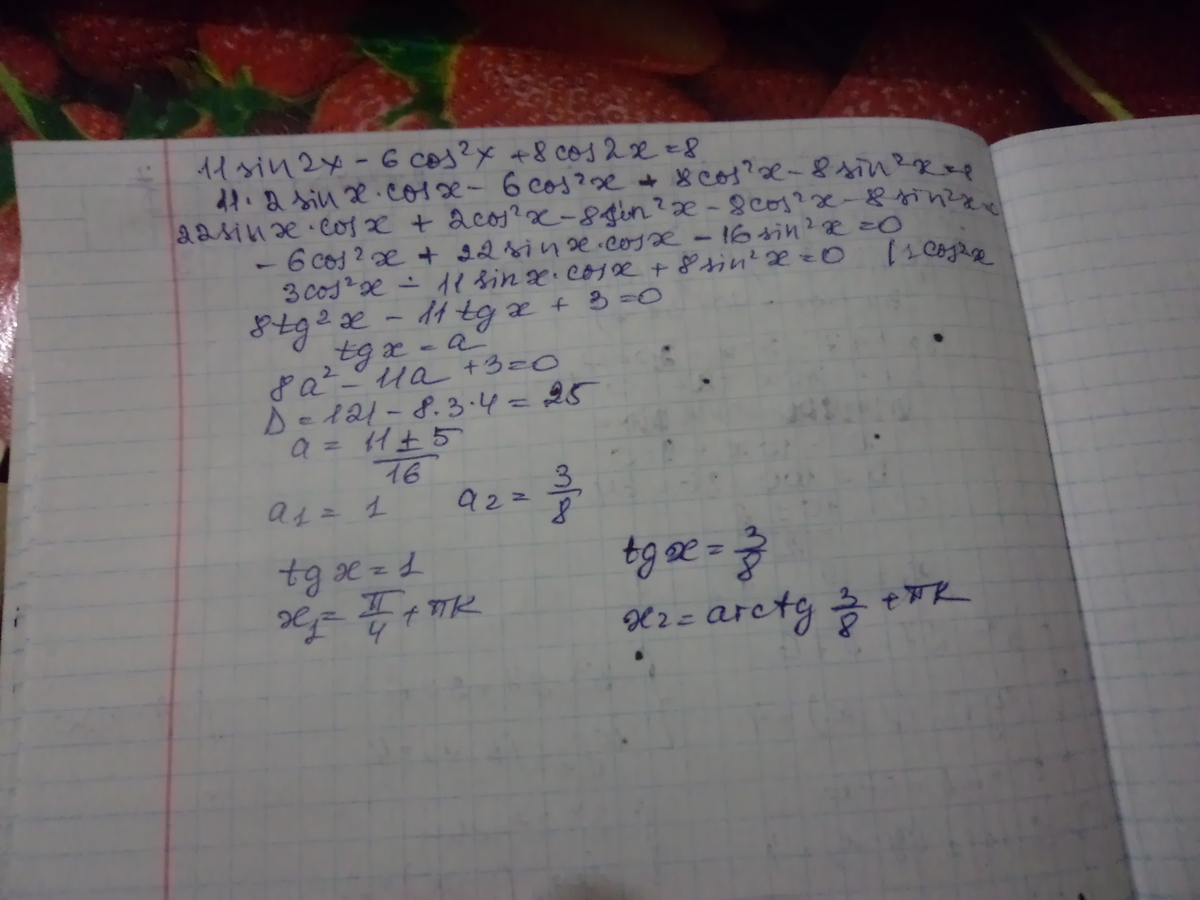 11 sin2x - 6 cos²x + 8 cos2x = 8
11 · 2 sinx · cosx - 6 cos²x + 8 cos²x - 8 sin²x = 8
22 sinx · cosx + 2 cos²x - 8 sin²x - 8 cos²x - 8 sin²x =
- 6 cos²x + 22 sinx · cosx - 16 sin²x = 0
3 cos²x - 11 sinx · cosx + 8 sin²x = 0 | : cos²x
8 tg²x - 11 tgx + 3 = 0
tgx = a
8a² - 11a + 3 = 0
D = 121 - 8 · 3 · 4 = 25
a = (11 ± 5)/16
a₁ = 1 a₂ = 3/8
tgx = 1 tgx = 3/8
x₁ = π/4 + πk x₂ = arctg 3/8 + πk